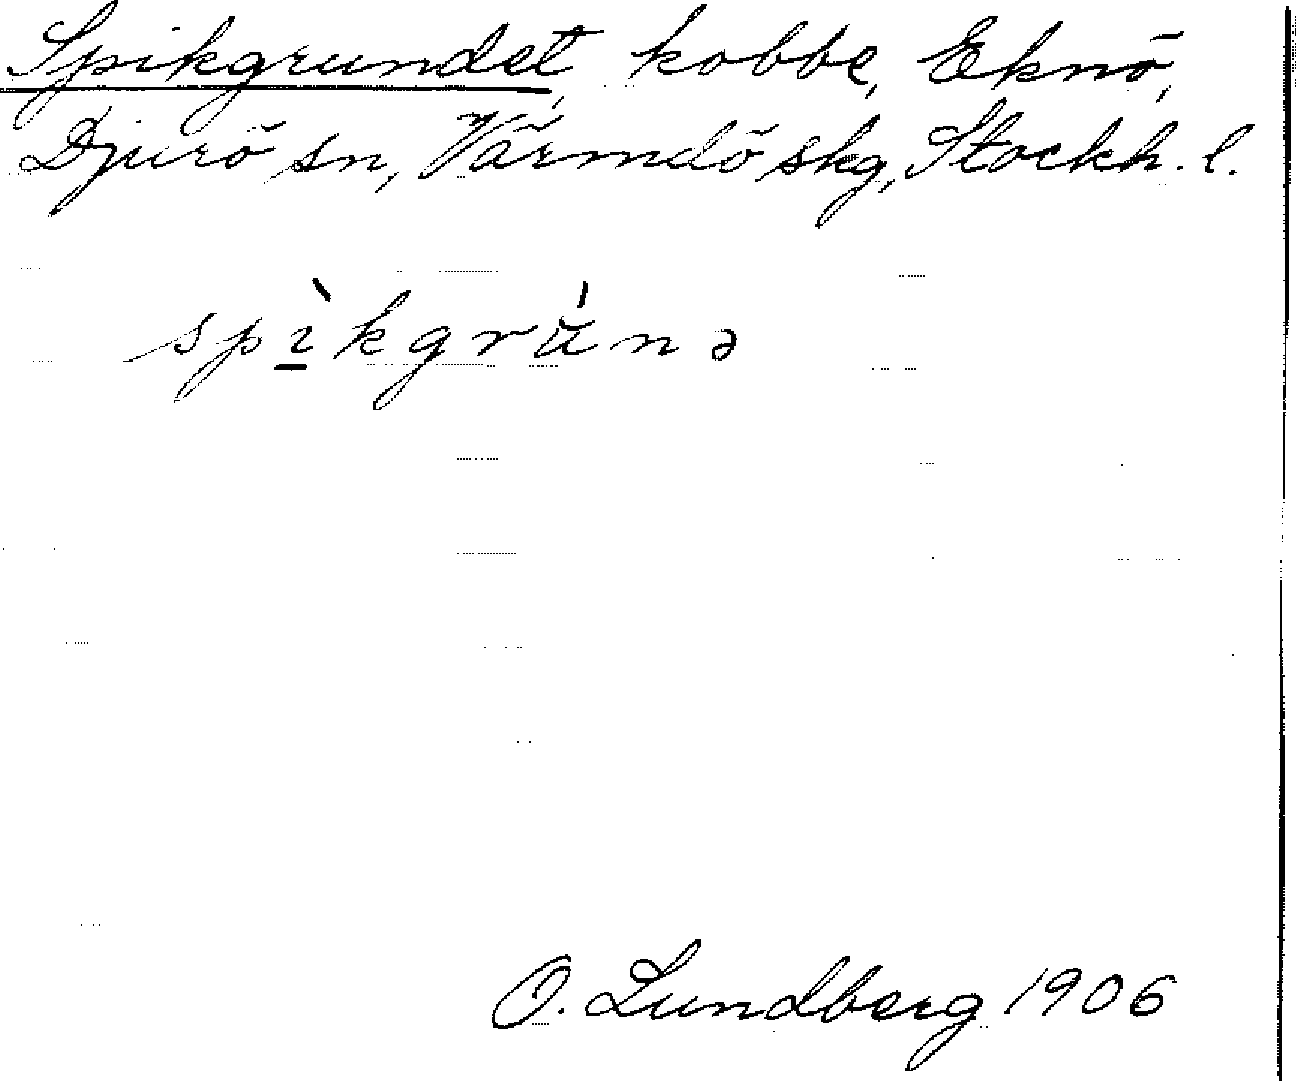 Spikgrundet, kobbe, Eknö,
Djurö sn, Värmdö skg, Stockh. l.
spı̱̀kgrú̈nə
O. Lundberg 1906